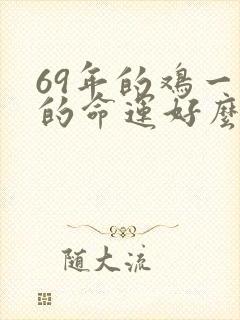 69年的鸡一
的命运好麽
随大流